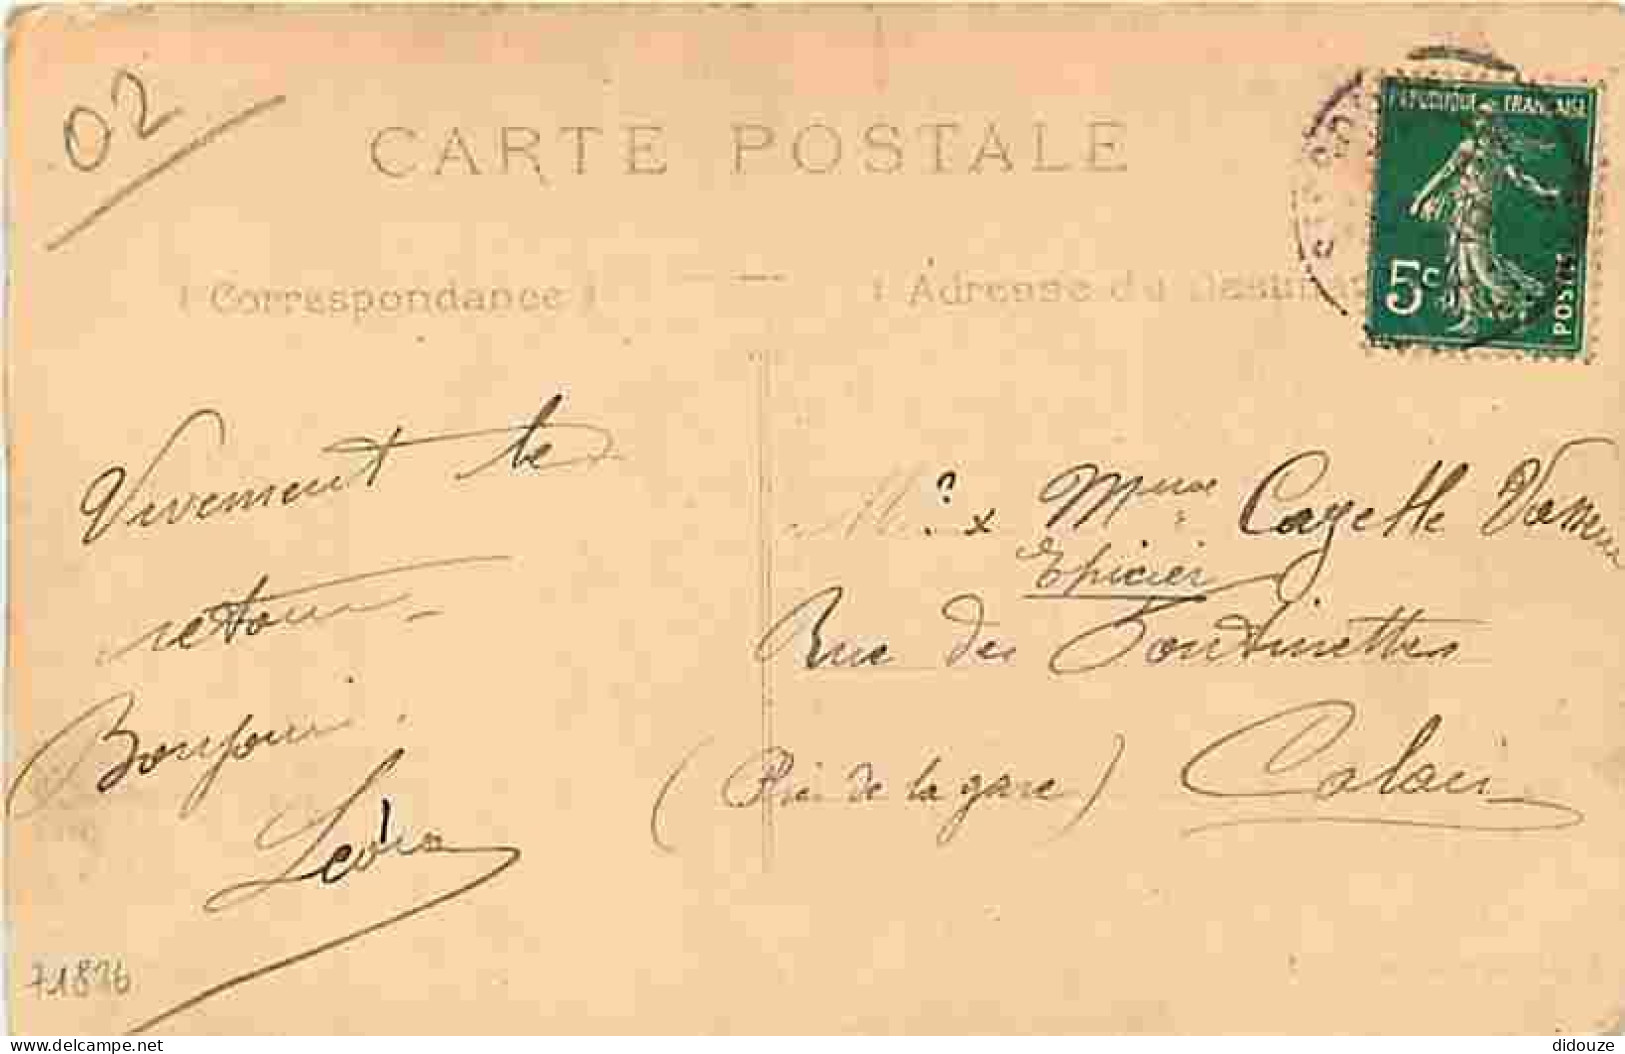 02
CARTE POSTALE
REPUBLIQUE FRANÇAISE
5c
POSTES
Correspondance
Adresse du
Vivement le
retour
Bonjour
Mme Cazette
Epicier
Rue des Fontinettes
(Près de la gare) Calais
71826
www.delcampe.net
didouze